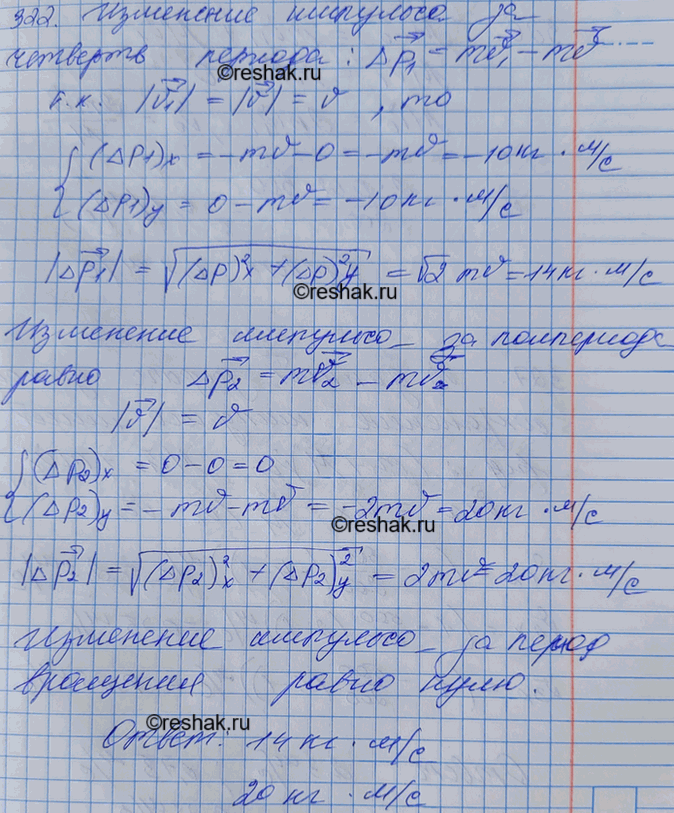 322. Изменение импульса за
четверть периода: Δp⃗₁ = mv⃗₁ − mv⃗
©reshak.ru
т.к. |v⃗₁| = |v⃗| = v, то
(Δp1)x = −mv − 0 = −mv = −10 кг · м/с
(Δp1)y = 0 − mv = −10 кг · м/с
|Δp⃗₁| = √((Δp)²x + (Δp)²y) = √2 mv = 14 кг · м/с
©reshak.ru
Изменение импульса за полпериода
равно Δp⃗₂ = mv⃗₂ − mv⃗
|v⃗| = v
(Δp₂)x = 0 − 0 = 0
(Δp₂)y = −mv − mv = −2mv = 20 кг · м/с
©reshak.ru
|Δp⃗₂| = √((Δp₂)²x + (Δp₂)²y) = 2mv = 20 кг · м/с
Изменение импульса за период
вращения равно нулю.
©reshak.ru
Ответ: 14 кг · м/с
20 кг · м/с